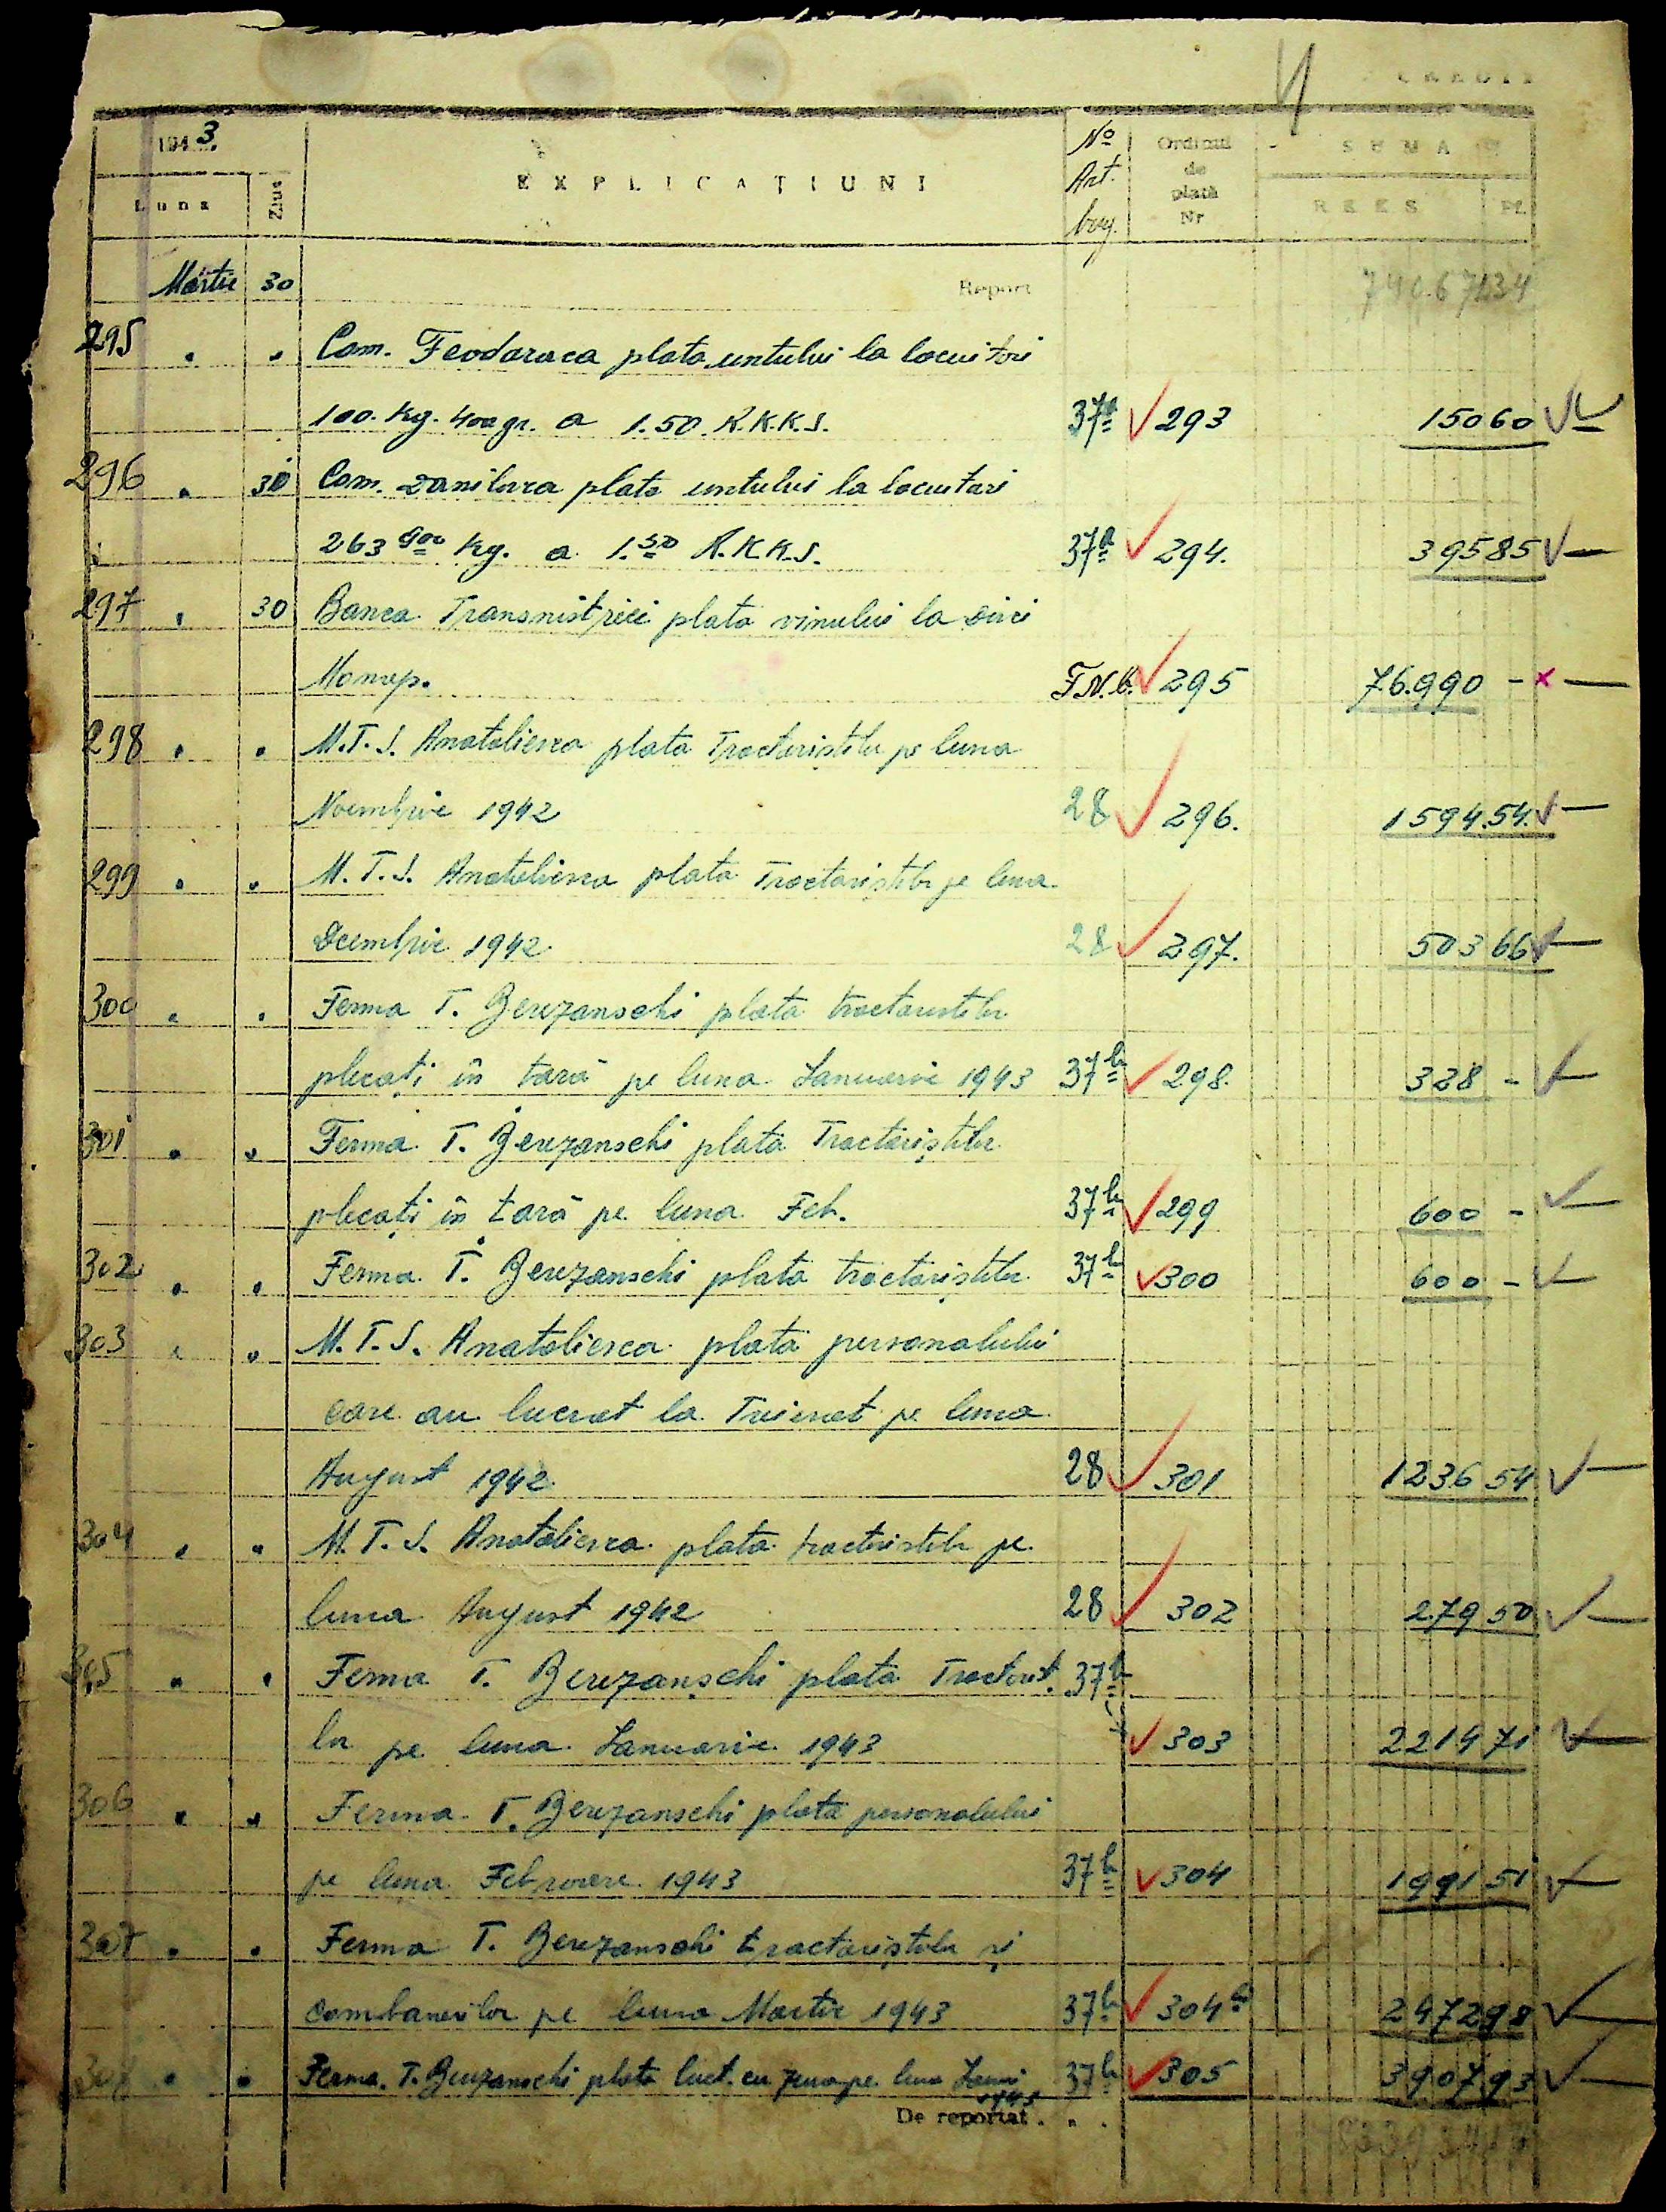 CREDIT
194 3.
Luna
Ziua
EXPLICAȚIUNI
No
Art.
bug.
Ordinul
de
plată
Nr
SUMA
REKS
Pf.
Martie 30 Report 740.67134
295 " " Com. Feodoraca plata untului la locuitori
100. Kg. 400 gr. a 1.50. R.K.K.S. 37a 293 15060
296 " 30 Com. Danilovca plata untului la locuitori
263 900 Kg. a 1.50 R.K.K.S. 37a 294. 39585
297 " 30 Banca Transnistriei plata vinului la
Monop. 295 76.990 -
298 " " M.T.S. Anatolievca plata Tractoriștilor pe luna
Noembrie 1942 28 296. 1594.54.
299 " " M.T.S. Anatolievca plata Tractoriștilor pe luna
Decembrie 1942 28 297. 50366
300 " " Ferma T. Berezanschi plata tractoristilor
plecați în țară pe luna Ianuarie 1943 37b 298. 328 -
301 " " Ferma T. Berezanschi plata Tractoriștilor
plecați în țară pe luna Feb. 37b 299 600 -
302 " " Ferma T. Berezanschi plata tractoriștilor 37b 300 600 -
303 " " M.T.S. Anatolievca plata personalului
care au lucrat la Treierat pe luna
August 1942 28 301 123654
304 " " M.T.S. Anatolievca plata tractoristilor pe
luna August 1942 28 302 27950
305 " " Ferma T. Berezanschi plata Tractorist. 37b
lor pe luna Ianuarie 1943 303 221471
306 " " Ferma T. Berezanschi plata personalului
pe luna Februare 1943 37b 304 199151
307 " " Ferma T. Berezanschi tractoriștilor și
combanerilor pe luna Martie 1943 37b 304b 247298
308 " " Ferma T. Berezanschi plata luct. cu ziua pe luna Ianui 37b 305 390793
1943
De reportat . " .